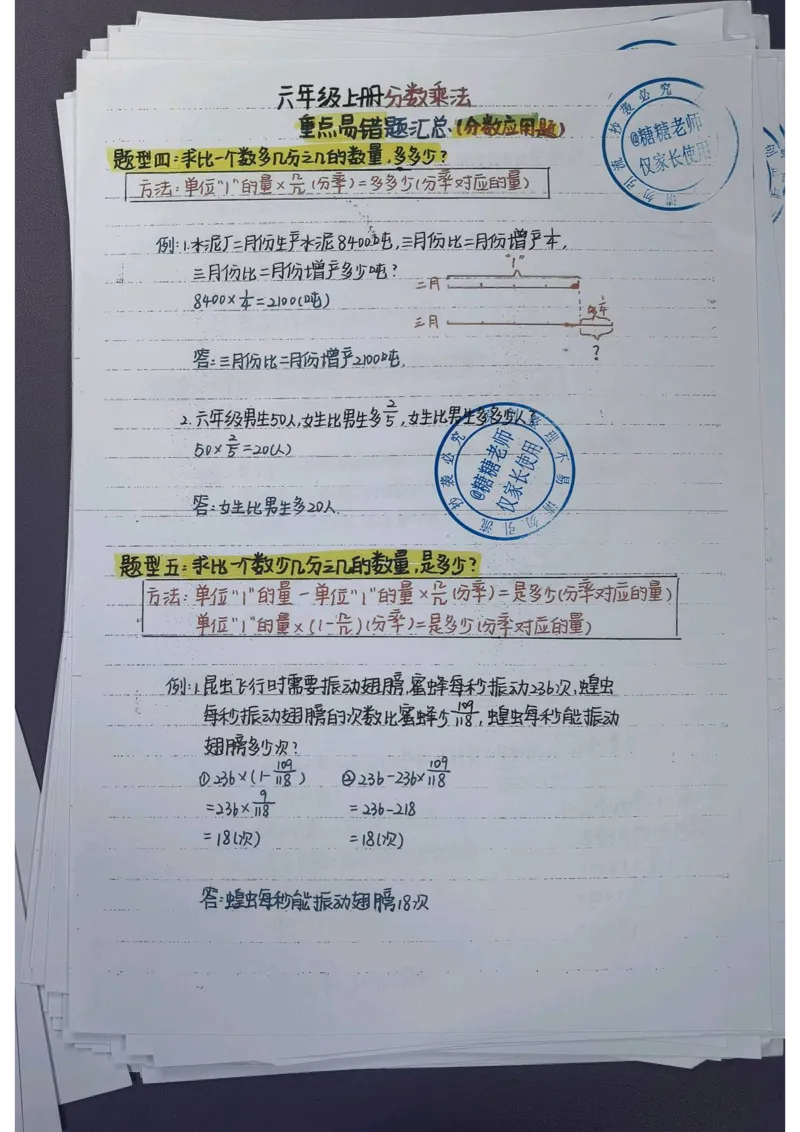 六年级上册分数乘法
重点易错题汇总(分数应用题)
题型四:求比一个数多几分之几的数量,多多少?
方法:单位"1"的量×几/几(分率)=多多少(分率对应的量)
例:1.水泥厂二月份生产水泥8400吨,三月份比二月份增产1/4,
三月份比二月份增产多少吨?
8400×1/4=2100(吨)
"1"
二月
多1/4
三月
?
答:三月份比二月份增产2100吨.
2.六年级男生50人,女生比男生多2/5,女生比男生多多少人?
50×2/5=20(人)
答:女生比男生多20人.
题型五:求比一个数少几分之几的数量,是多少?
方法:单位"1"的量-单位"1"的量×几/几(分率)=是多少(分率对应的量)
单位"1"的量×(1-几/几)(分率)=是多少(分率对应的量)
例:1.昆虫飞行时需要振动翅膀,蜜蜂每秒振动236次,蝗虫
每秒振动翅膀的次数比蜜蜂少109/118,蝗虫每秒能振动
翅膀多少次?
①236×(1-109/118) ②236-236×109/118
=236×9/118 =236-218
=18(次) =18(次)
答:蝗虫每秒能振动翅膀18次
@糖糖老师
仅家长使用
抄袭必究
请勿引流
@糖糖老师
仅家长使用
抄袭必究
整理不易
请勿引流